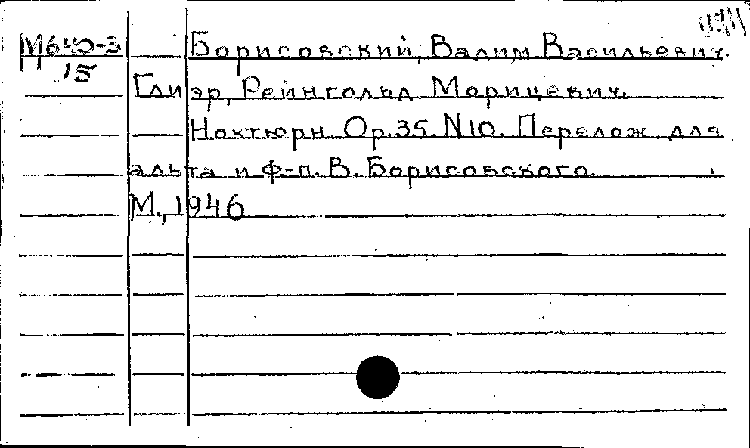 М640-3
15
Борисовский, Вадим Васильевич.
Глиэр, Рейнгольд Морицевич.
Ноктюрн. Ор.35. N10. Перелож. для
альта и ф-п. В. Борисовского.
М., 1946